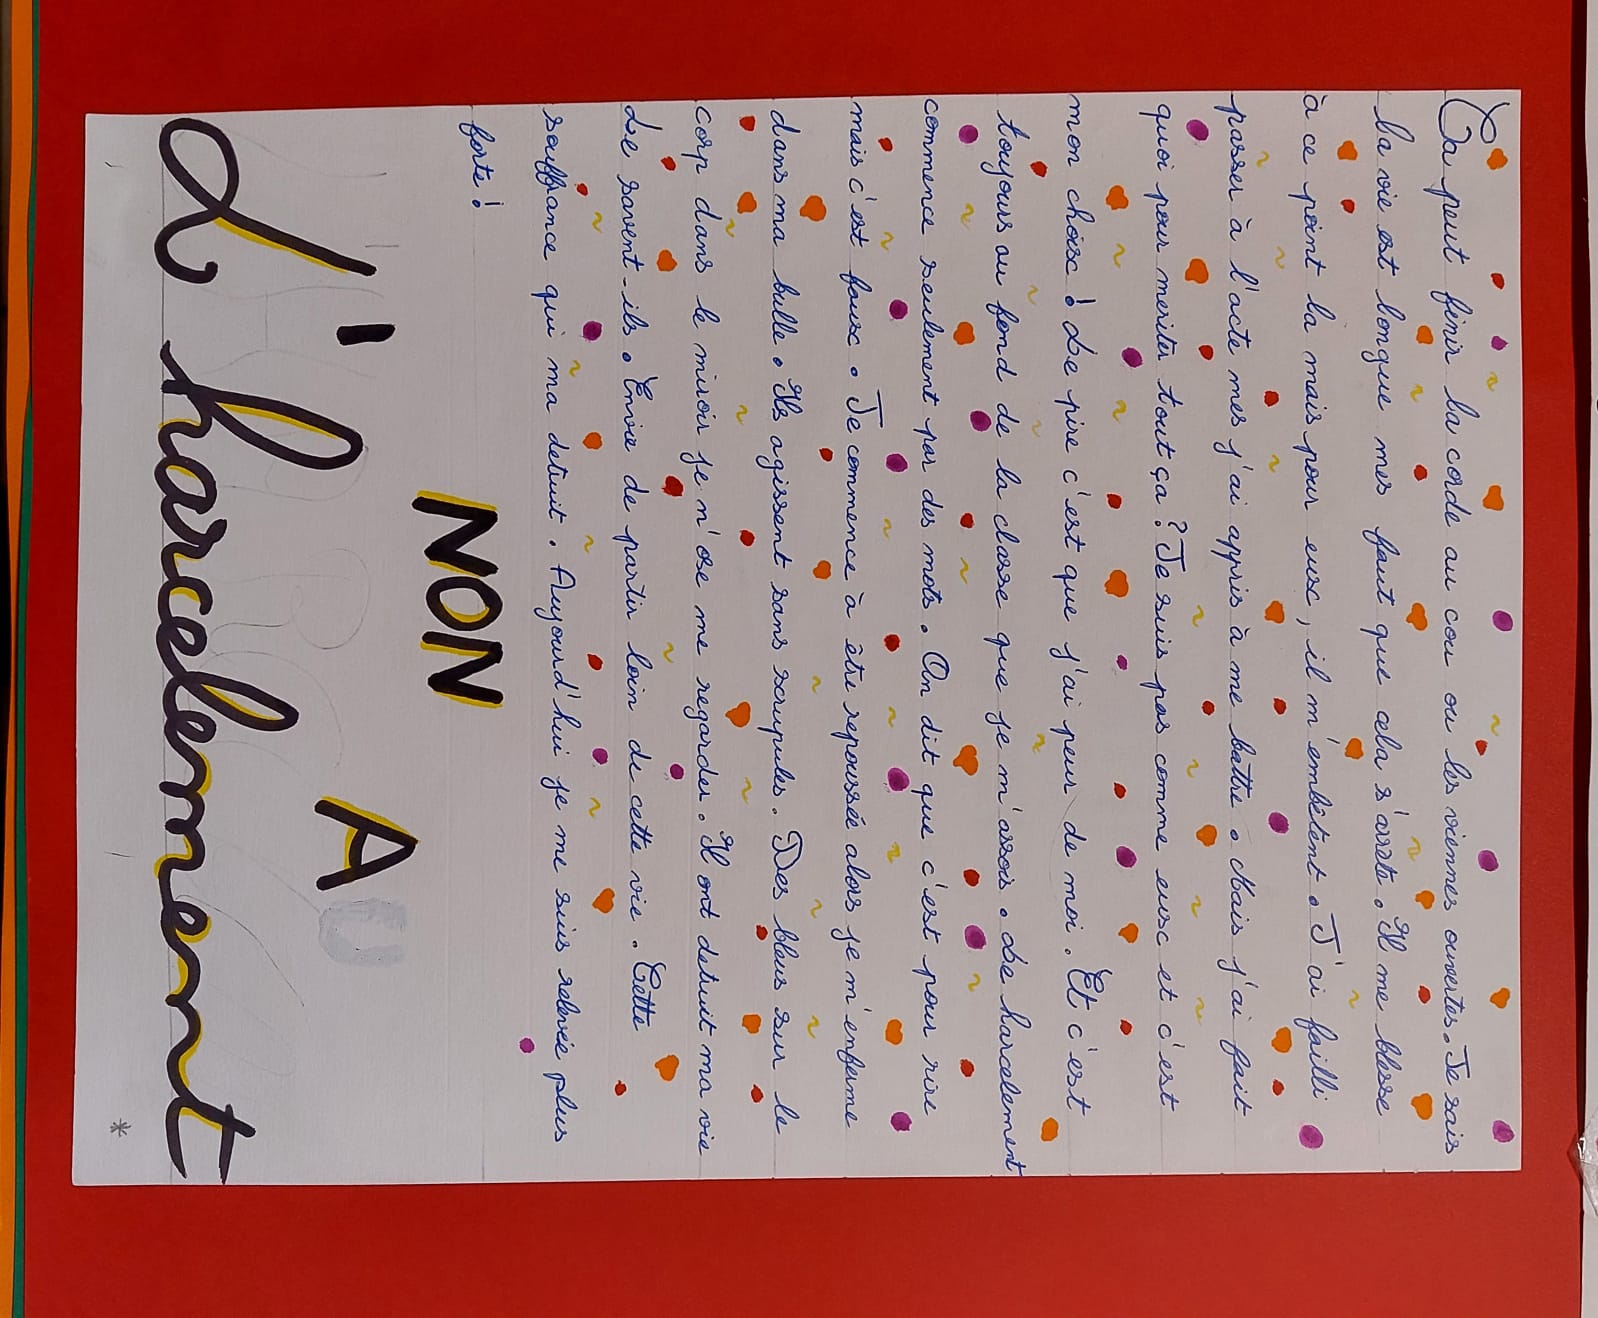 Ça peut finir la corde au cou ou les viennes ouvertes. Je sais
la vie est longue mes faut que cela s'arrete. Il me blesse
à ce point la mais pour eux, il m'embêtent. J'ai failli
passer à l'acte mes j'ai appris à me battre. Mais j'ai fait
quoi pour meriter tout ça ? Je suis pas comme eux et c'est
mon choix ! Le pire c'est que j'ai peur de moi. Et c'est
toujours au fond de la classe que je m'assois. Le harcelement
commence seulement par des mots. On dit que c'est pour rire
mais c'est faux. Je commence à être repoussée alors je m'enferme
dans ma bulle. Ils agissent sans scrupules. Des bleus sur le
corp dans le miroir je n'ose me regarder. Il ont detruit ma vie
Le savent-ils. Envie de partir loin de cette vie. Cette
souffrance qui ma detruit. Aujourd'hui je me suis relevée plus
forte !
NON
A
L'harcelement
*